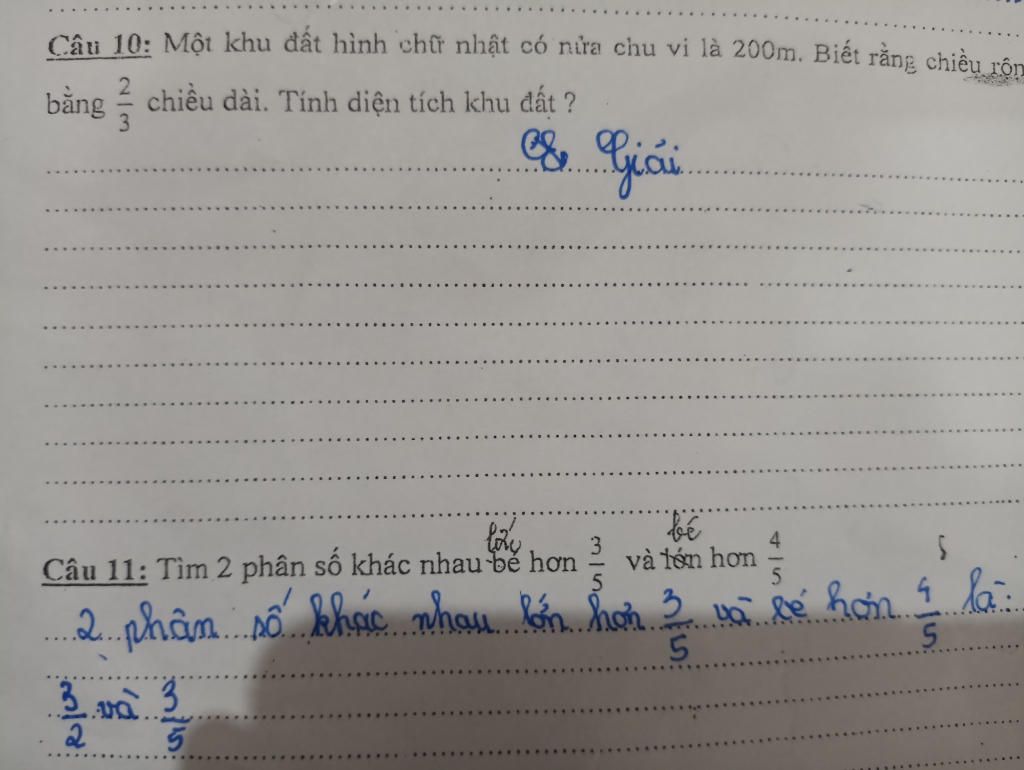 Câu 10: Một khu đất hình chữ nhật có nửa chu vi là 200m. Biết rằng chiều rộn
bằng 2/3 chiều dài. Tính diện tích khu đất ?
Giải
lớn bé
Câu 11: Tìm 2 phân số khác nhau bé hơn 3/5 và lớn hơn 4/5
2 phân số khác nhau lớn hơn 3/5 và bé hơn 4/5 là:
3/2 và 3/5